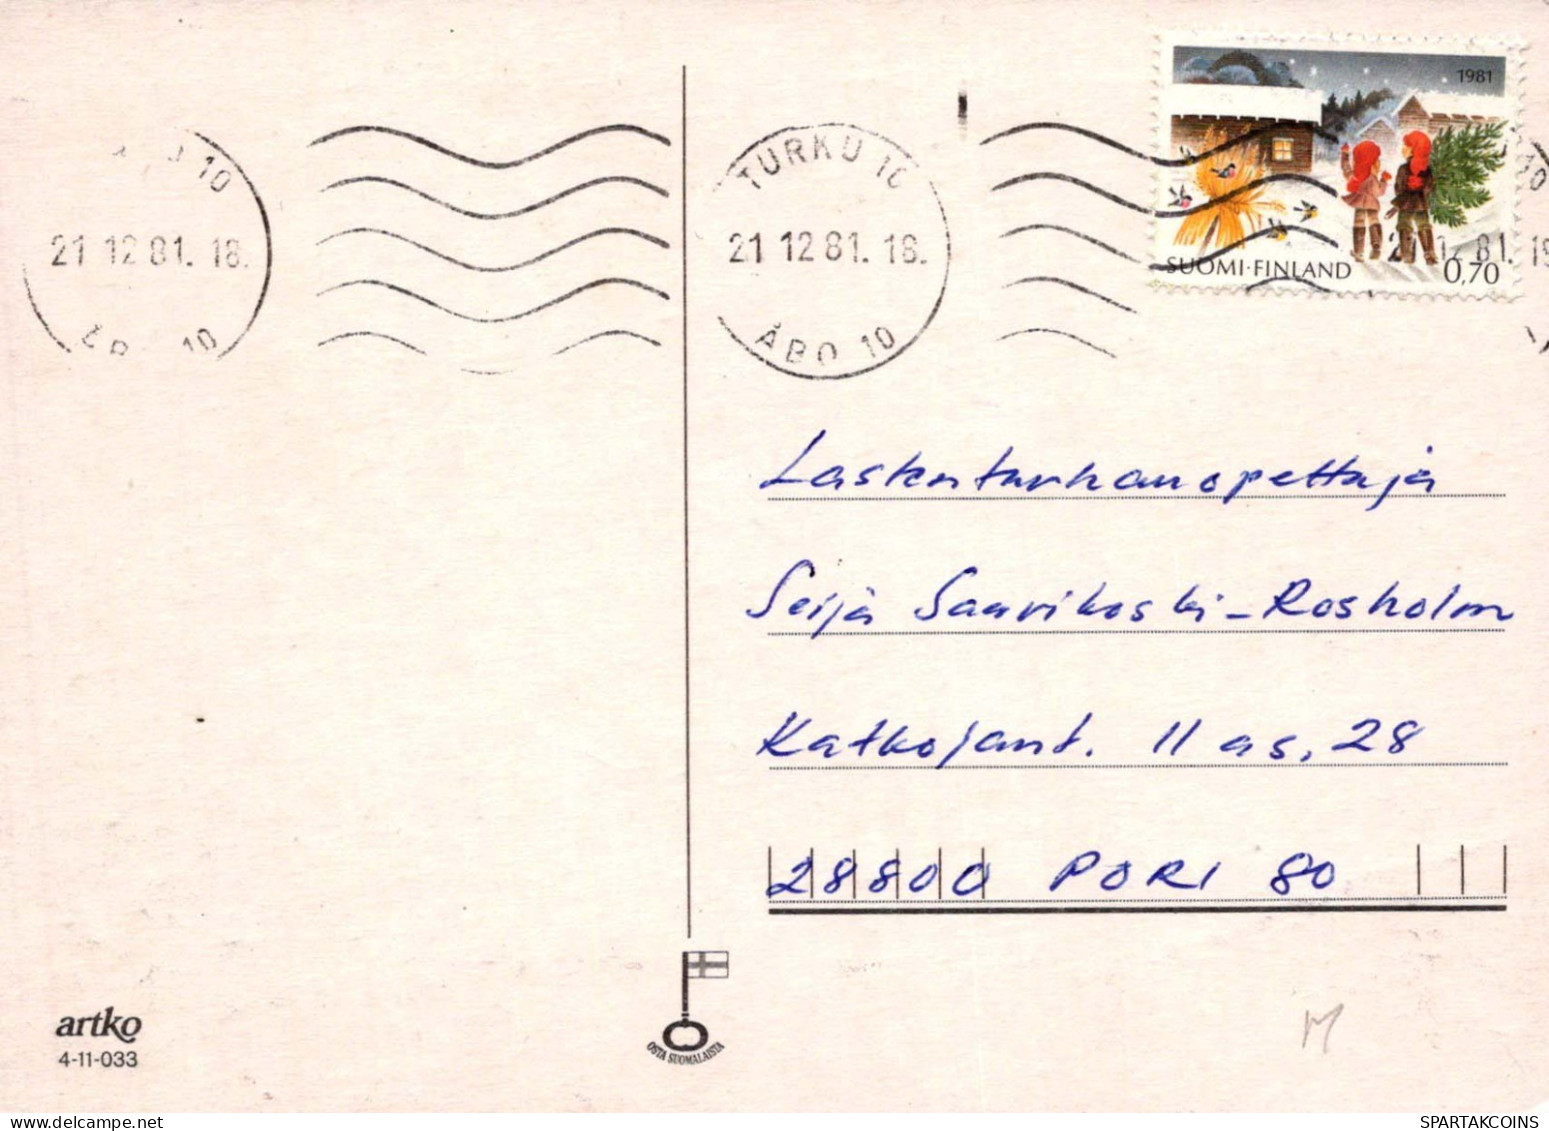 1981
TURKU 10
10
21.12.81.18.
21.12.81.18.
21.12.81.18
ÅBO 10
10
SUOMI·FINLAND 0,70
Lastentarhanopettaja
Seija Saarikoski-Rosholm
Katkojant. 11 as. 28
28800 PORI 80
artko
4-11-033
OSTA SUOMALAISTA
M
delcampe.net
SPARTAKCOINS